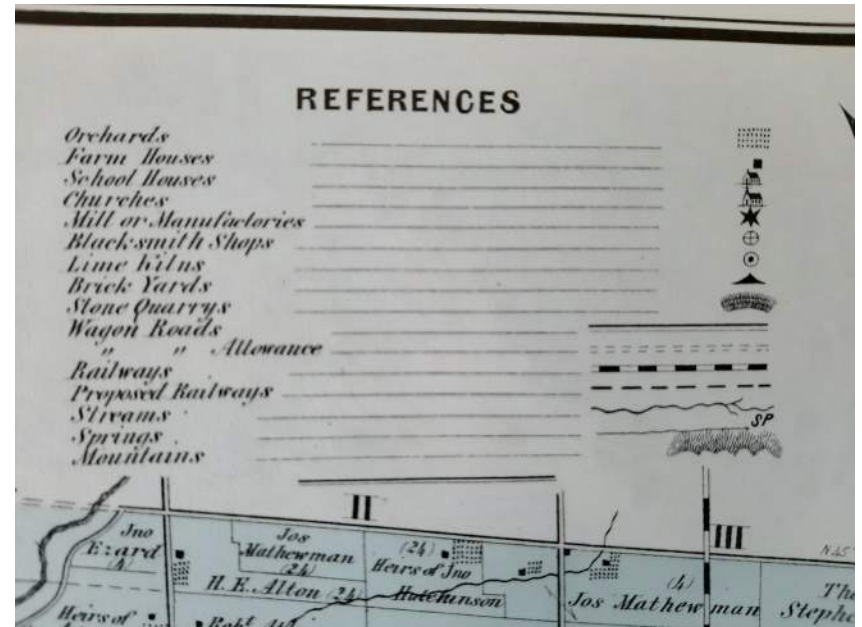 REFERENCES
Orchards
Farm Houses
School Houses
Churches
Mill or Manufactories
Blacksmith Shops
Lime Kilns
Brick Yards
Stone Quarrys
Wagon Roads
" " Allowance
Railways
Proposed Railways
Streams
Springs SP
Mountains
II
III
Jno
Ezard
(4)
Jos
Mathewman
(24)
H. E. Alton (24)
(24)
Heirs of Jno
Hutchinson
(4)
Jos Mathewman
N45
Heirs of
Robt